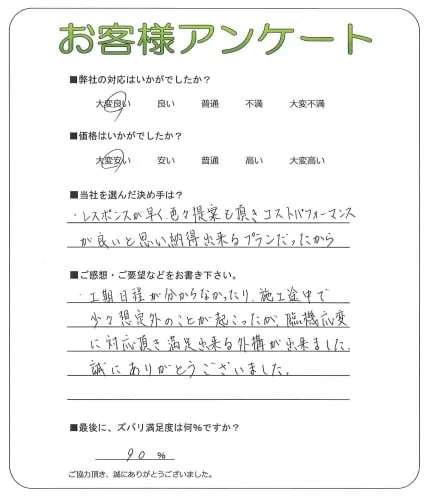 お客様アンケート
■弊社の対応はいかがでしたか？
大変良い 良い 普通 不満 大変不満
■価格はいかがでしたか？
大変安い 安い 普通 高い 大変高い
■当社を選んだ決め手は？
・レスポンスが早く、色々提案も頂きコストパフォーマンス
が良いと思い納得出来るプランだったから
■ご感想・ご要望などをお書き下さい。
・工期日程が分からなかったり、施工途中で
少々想定外のことが起こったが、臨機応変
に対応頂き満足出来る外構が出来ました。
誠にありがとうございました。
■最後に、ズバリ満足度は何%ですか？
90 %
ご協力頂き、誠にありがとうございました。